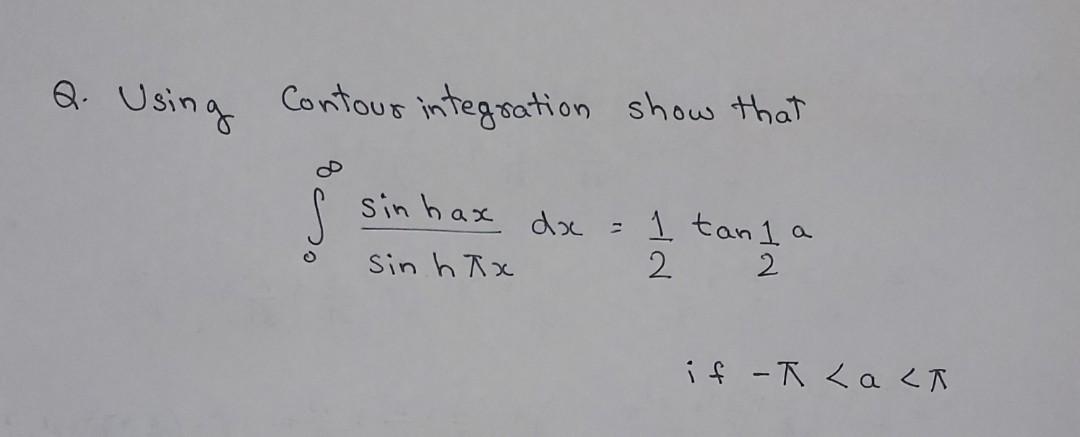 Q. Using Contour integration show that
∞
∫ sin hax / sin hπx dx = 1/2 tan 1/2 a
0
if -π < a < π